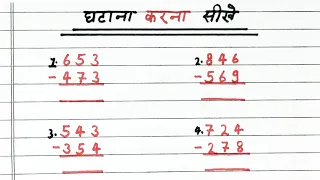 घटाना करना सीखे
1. 653 2. 846
- 473 - 569
3. 543 4. 724
- 354 - 278